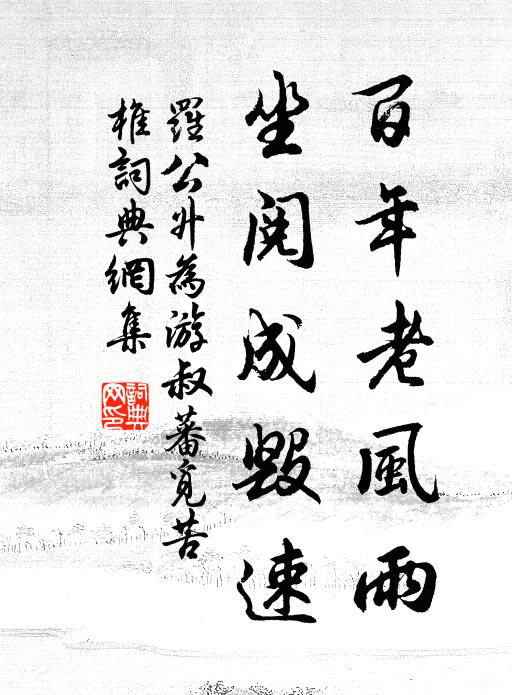 百年老風雨
坐閱成毀速
羅公升為游叔蕃覓苦
椎詞典網集
詞典
网印